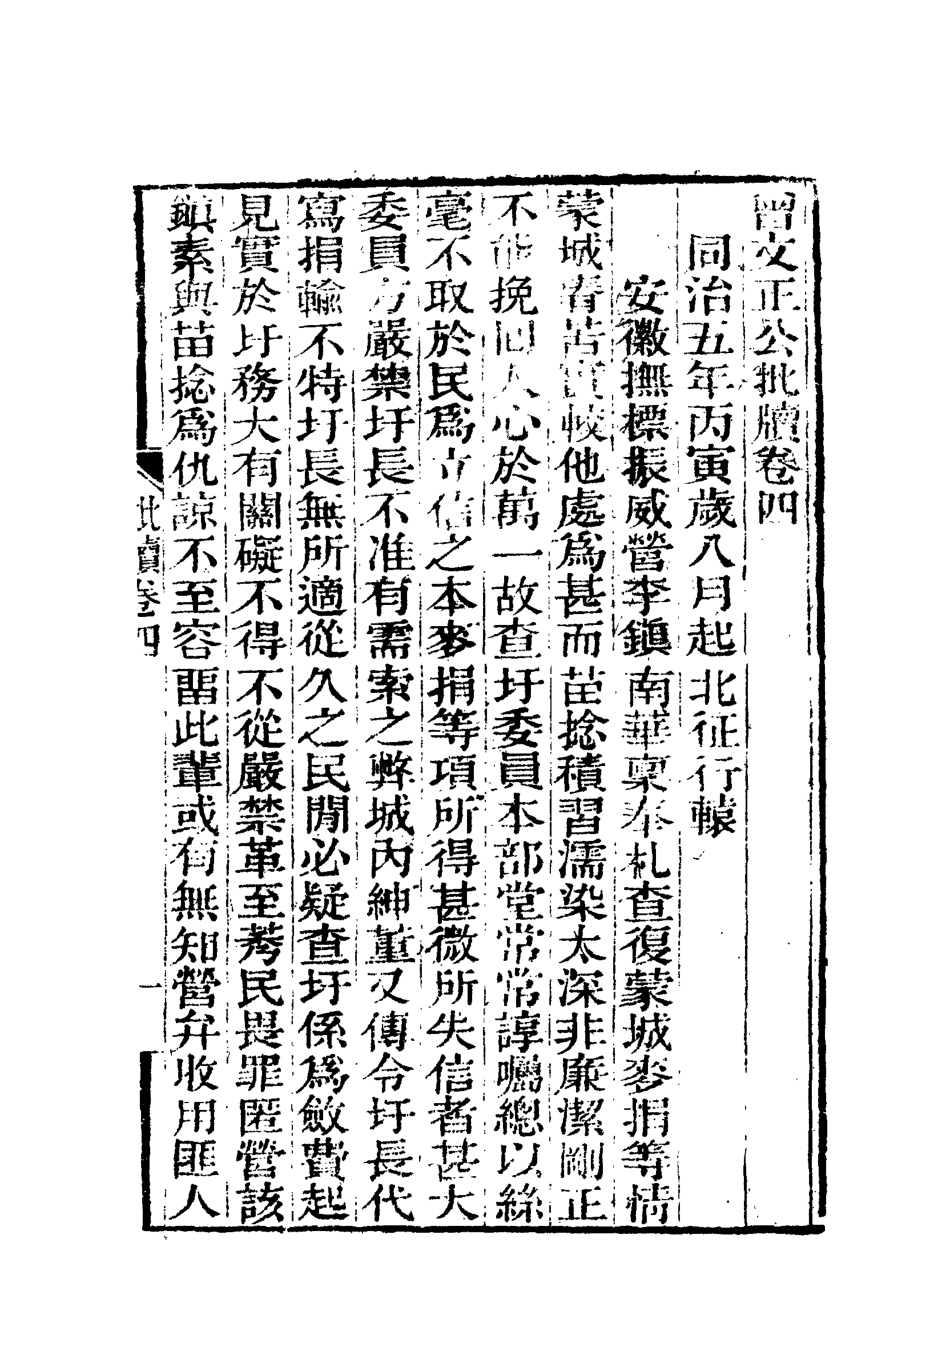 曾文正公批牘卷四
同治五年丙寅歲八月起北征行轅
安徽撫標振威營李鎭南華稟奉札查復蒙城麥捐等情
蒙城眷苦實較他處爲甚而苗捻積習濡染太深非廉潔剛正
不能挽回人心於萬一故查圩委員本部堂常常諄囑總以絲
毫不取於民爲立信之本麥捐等項所得甚微所失信者甚大
委員方嚴禁圩長不准有需索之弊城內紳董又傳令圩長代
寫捐輸不特圩長無所適從久之民閒必疑查圩係爲斂費起
見實於圩務大有關礙不得不從嚴禁革至莠民畏罪匿營該
鎭素與苗捻爲仇諒不至容畱此輩或有無知營弁收用匪人
批牘卷四 一